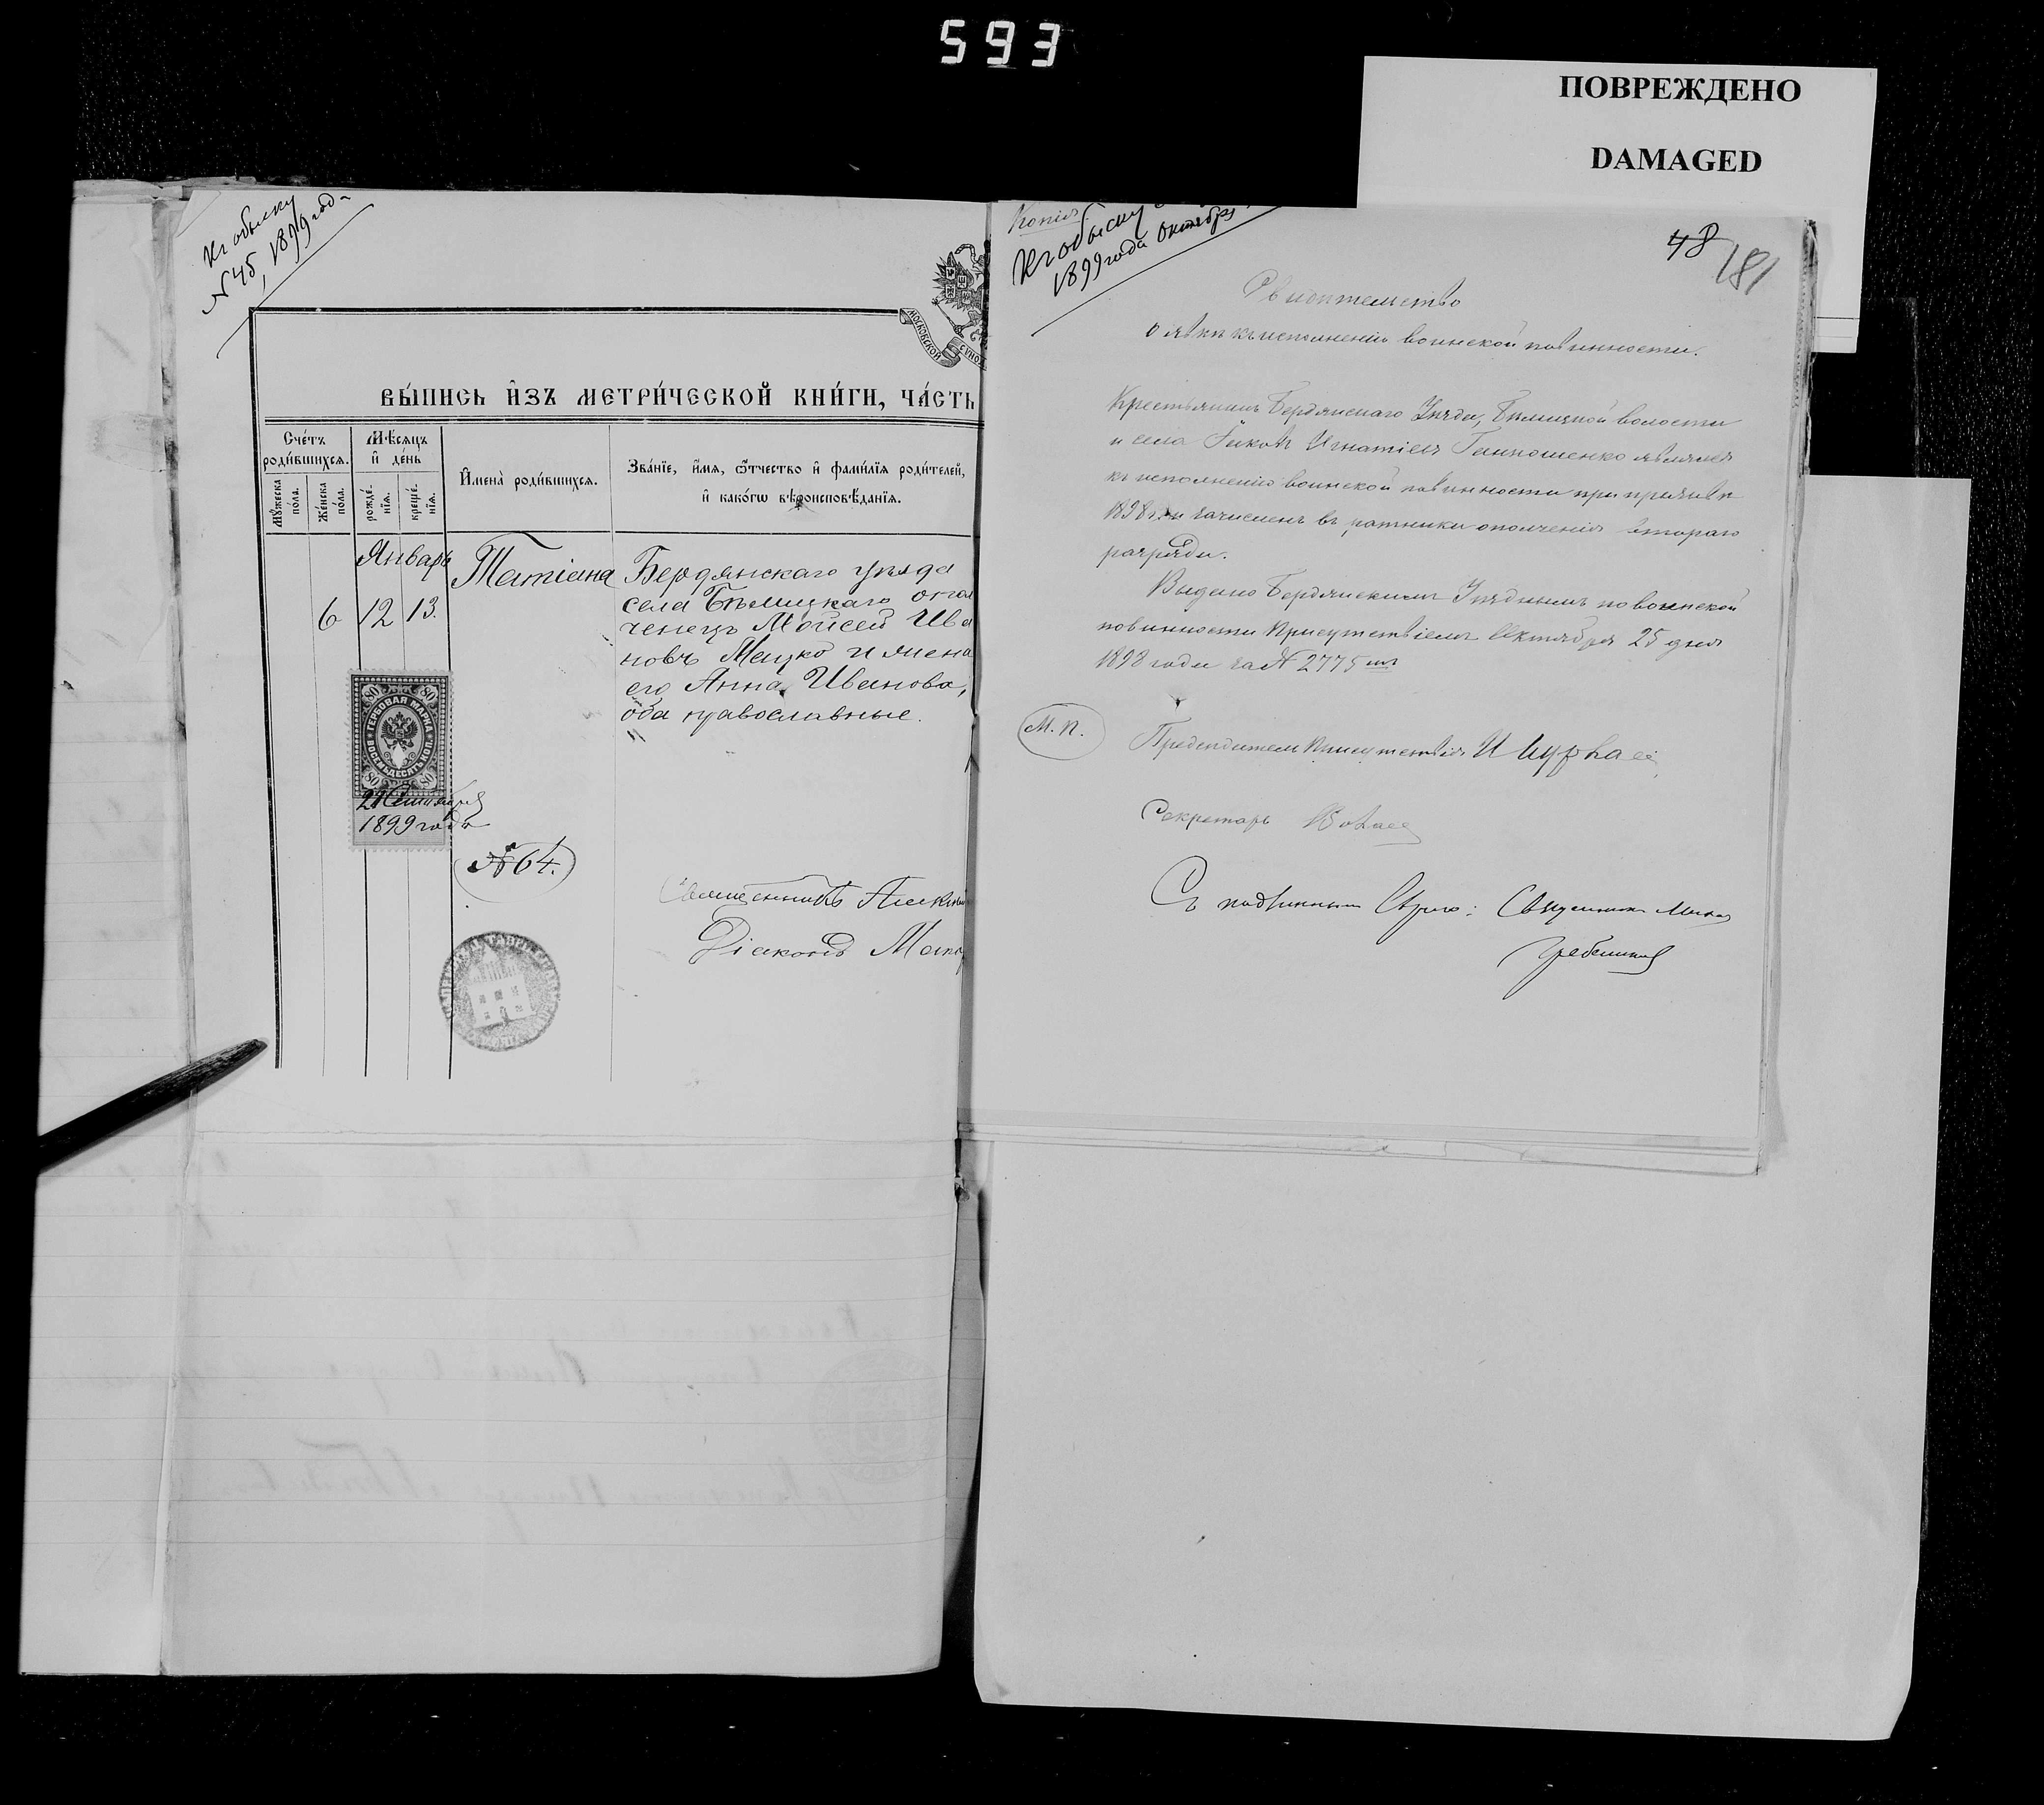 593
ПОВРЕЖДЕНО
DAMAGED
Къ обыску
№ 45, 1899 года
МОСКОВСКОЙ
СѴНОД
ВЫ́ПИСЬ И҆ЗЪ МЕТРИ́ЧЕСКОЙ КНИ́ГИ, ЧА́СТЬ
Сче́тъ
роди́вшихсѧ.
Мѣ́сѧцъ
и҆ де́нь
Мꙋ́жеска
по́ла.
Же́нска
по́ла.
рожде́-
нїѧ.
креще́-
нїѧ.
И҆мена̀ роди́вшихсѧ.
Зва́нїе, и҆́мѧ, ѻ҆́тчество и҆ фами́лїѧ роди́телей,
и҆ како́гѡ вѣроисповѣ́данїѧ.
Январь
6 12 13.
Татіана
Бердянскаго уѣзда
села Бѣлицкаго опол
ченецъ Моисей Ива
новъ Мацко и жена
его Анна Иванова,
оба православные.
80 80
ГЕРБОВАЯ МАРКА
ВОСЕМЬДЕСЯТЪ КОП.
80 80
1899 года
№ 64.
Священникъ
Діаконъ
Копія.
Къ обыску
1899 года Октября
48
181
Свидѣтельство
о явкѣ къ исполненію воинской повинности.
Крестьянинъ Бердянскаго Уѣзда, Бѣлицкой волости
и села Яковъ Игнатіевъ Ганношенко являлся
къ исполненію воинской повинности при призывѣ
1898 г. и зачисленъ въ ратники ополченія втораго
разряда.
Выдано Бердянскимъ Уѣзднымъ по воинской
повинности Присутствіемъ Октября 25 дня
1898 года за № 2775 мъ
М. П.
Предсѣдатель Присутствія
Секретарь
Съ подлиннымъ вѣрно: Священникъ